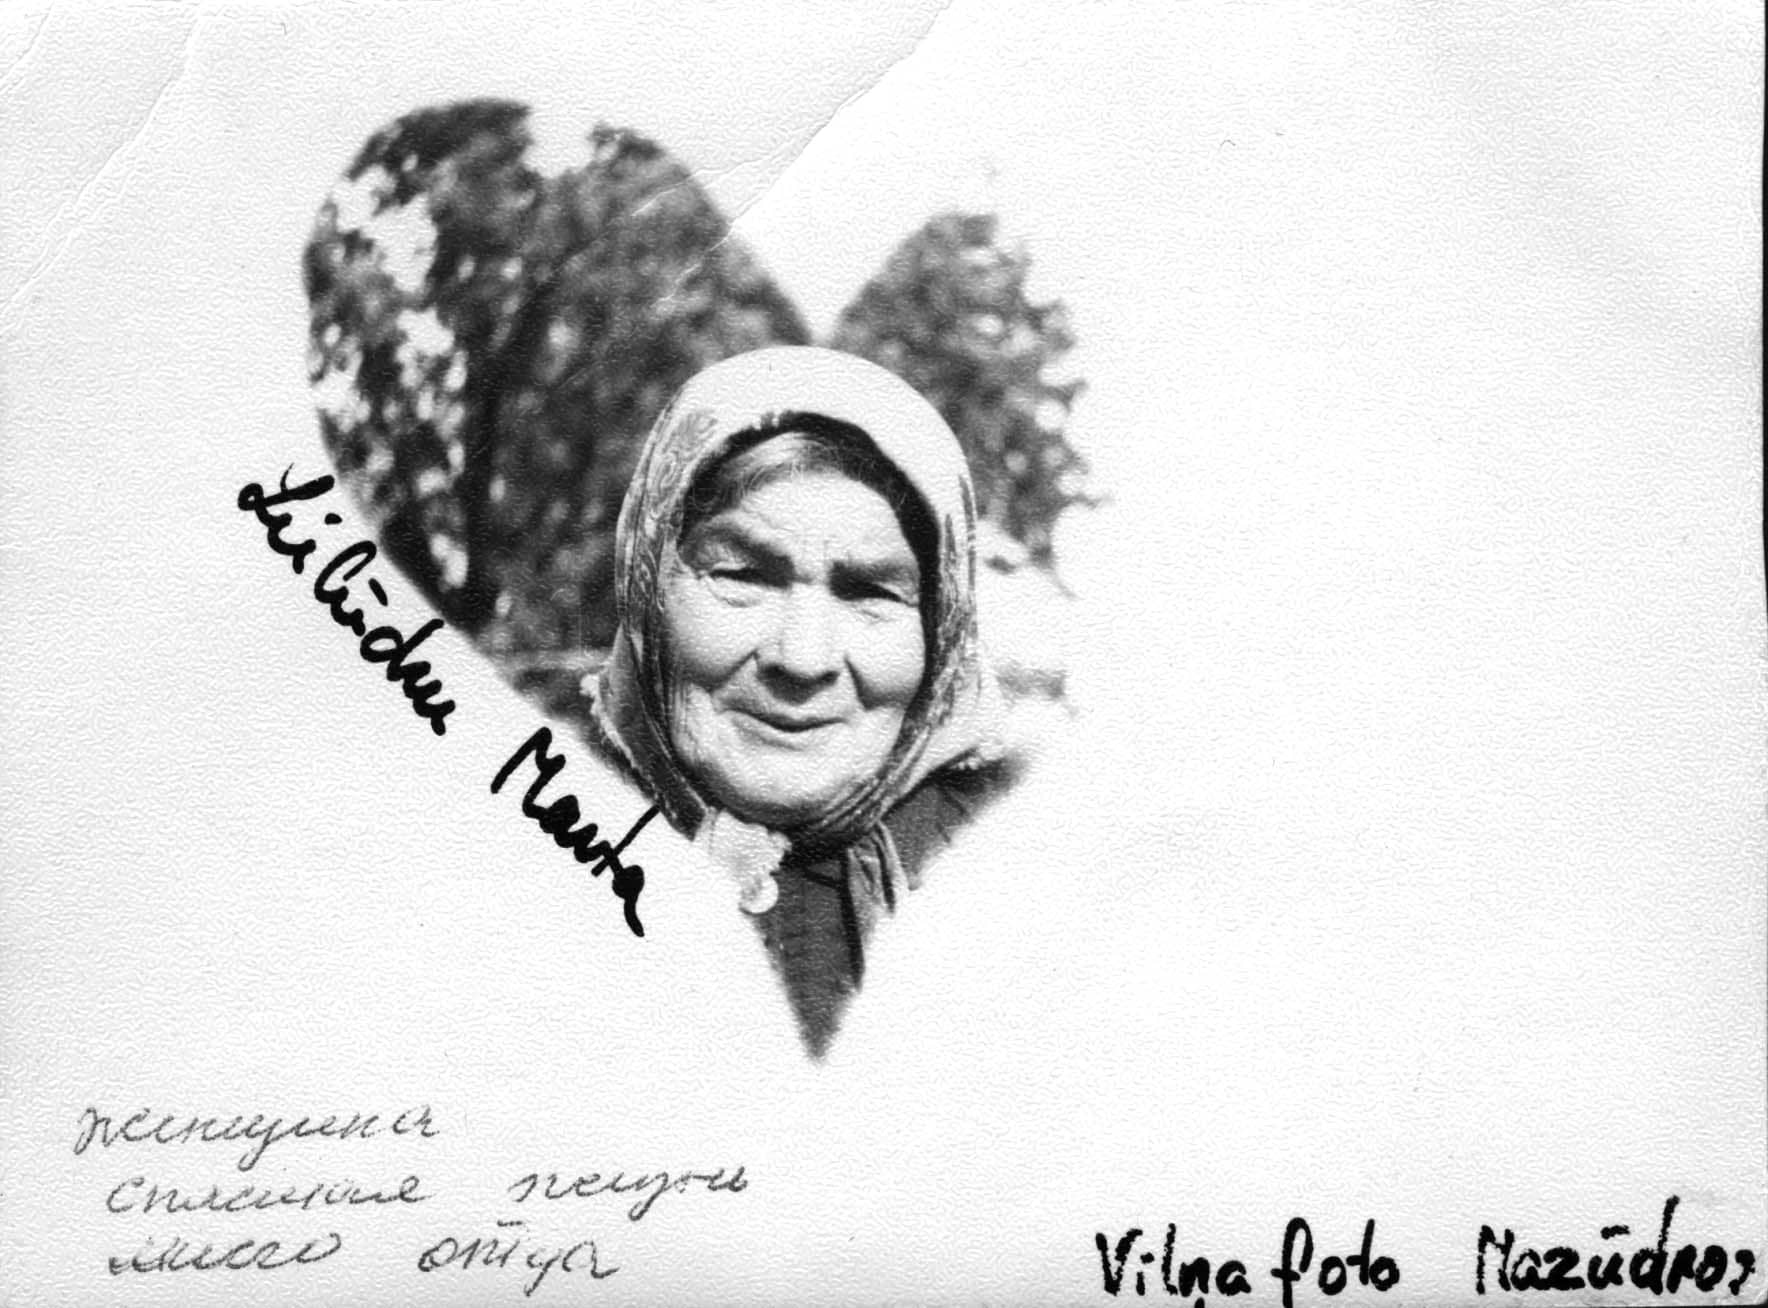 Lielūdru Marta
женщина
спасшая жизнь
моего отца
Vilņa foto Mazūdros